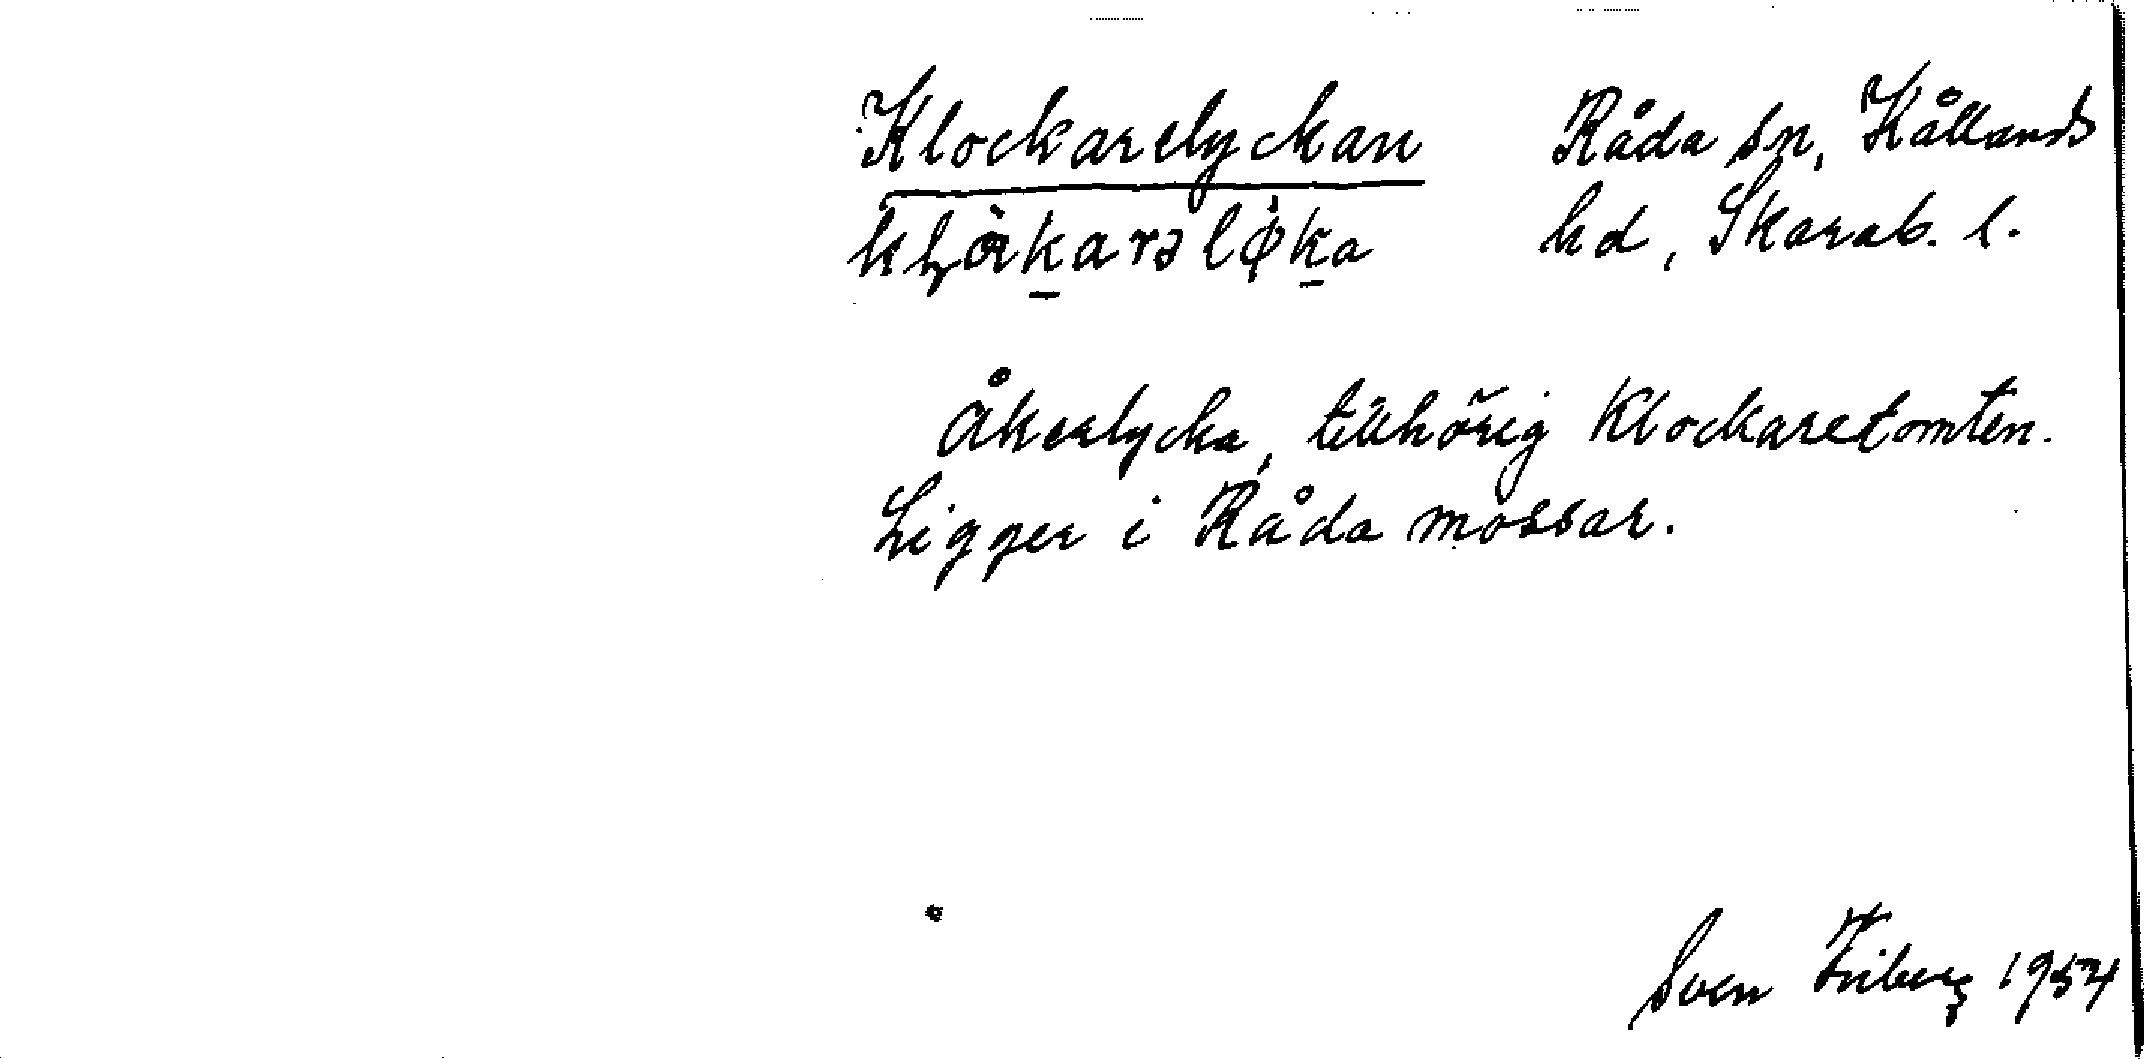 Klockarelyckan Råda sn, Kållands
hd, Skarab. l.
Åkerlycka, tillhörig Klockaretomten.
Ligger i Råda mossar.
Sven Friberg 1954